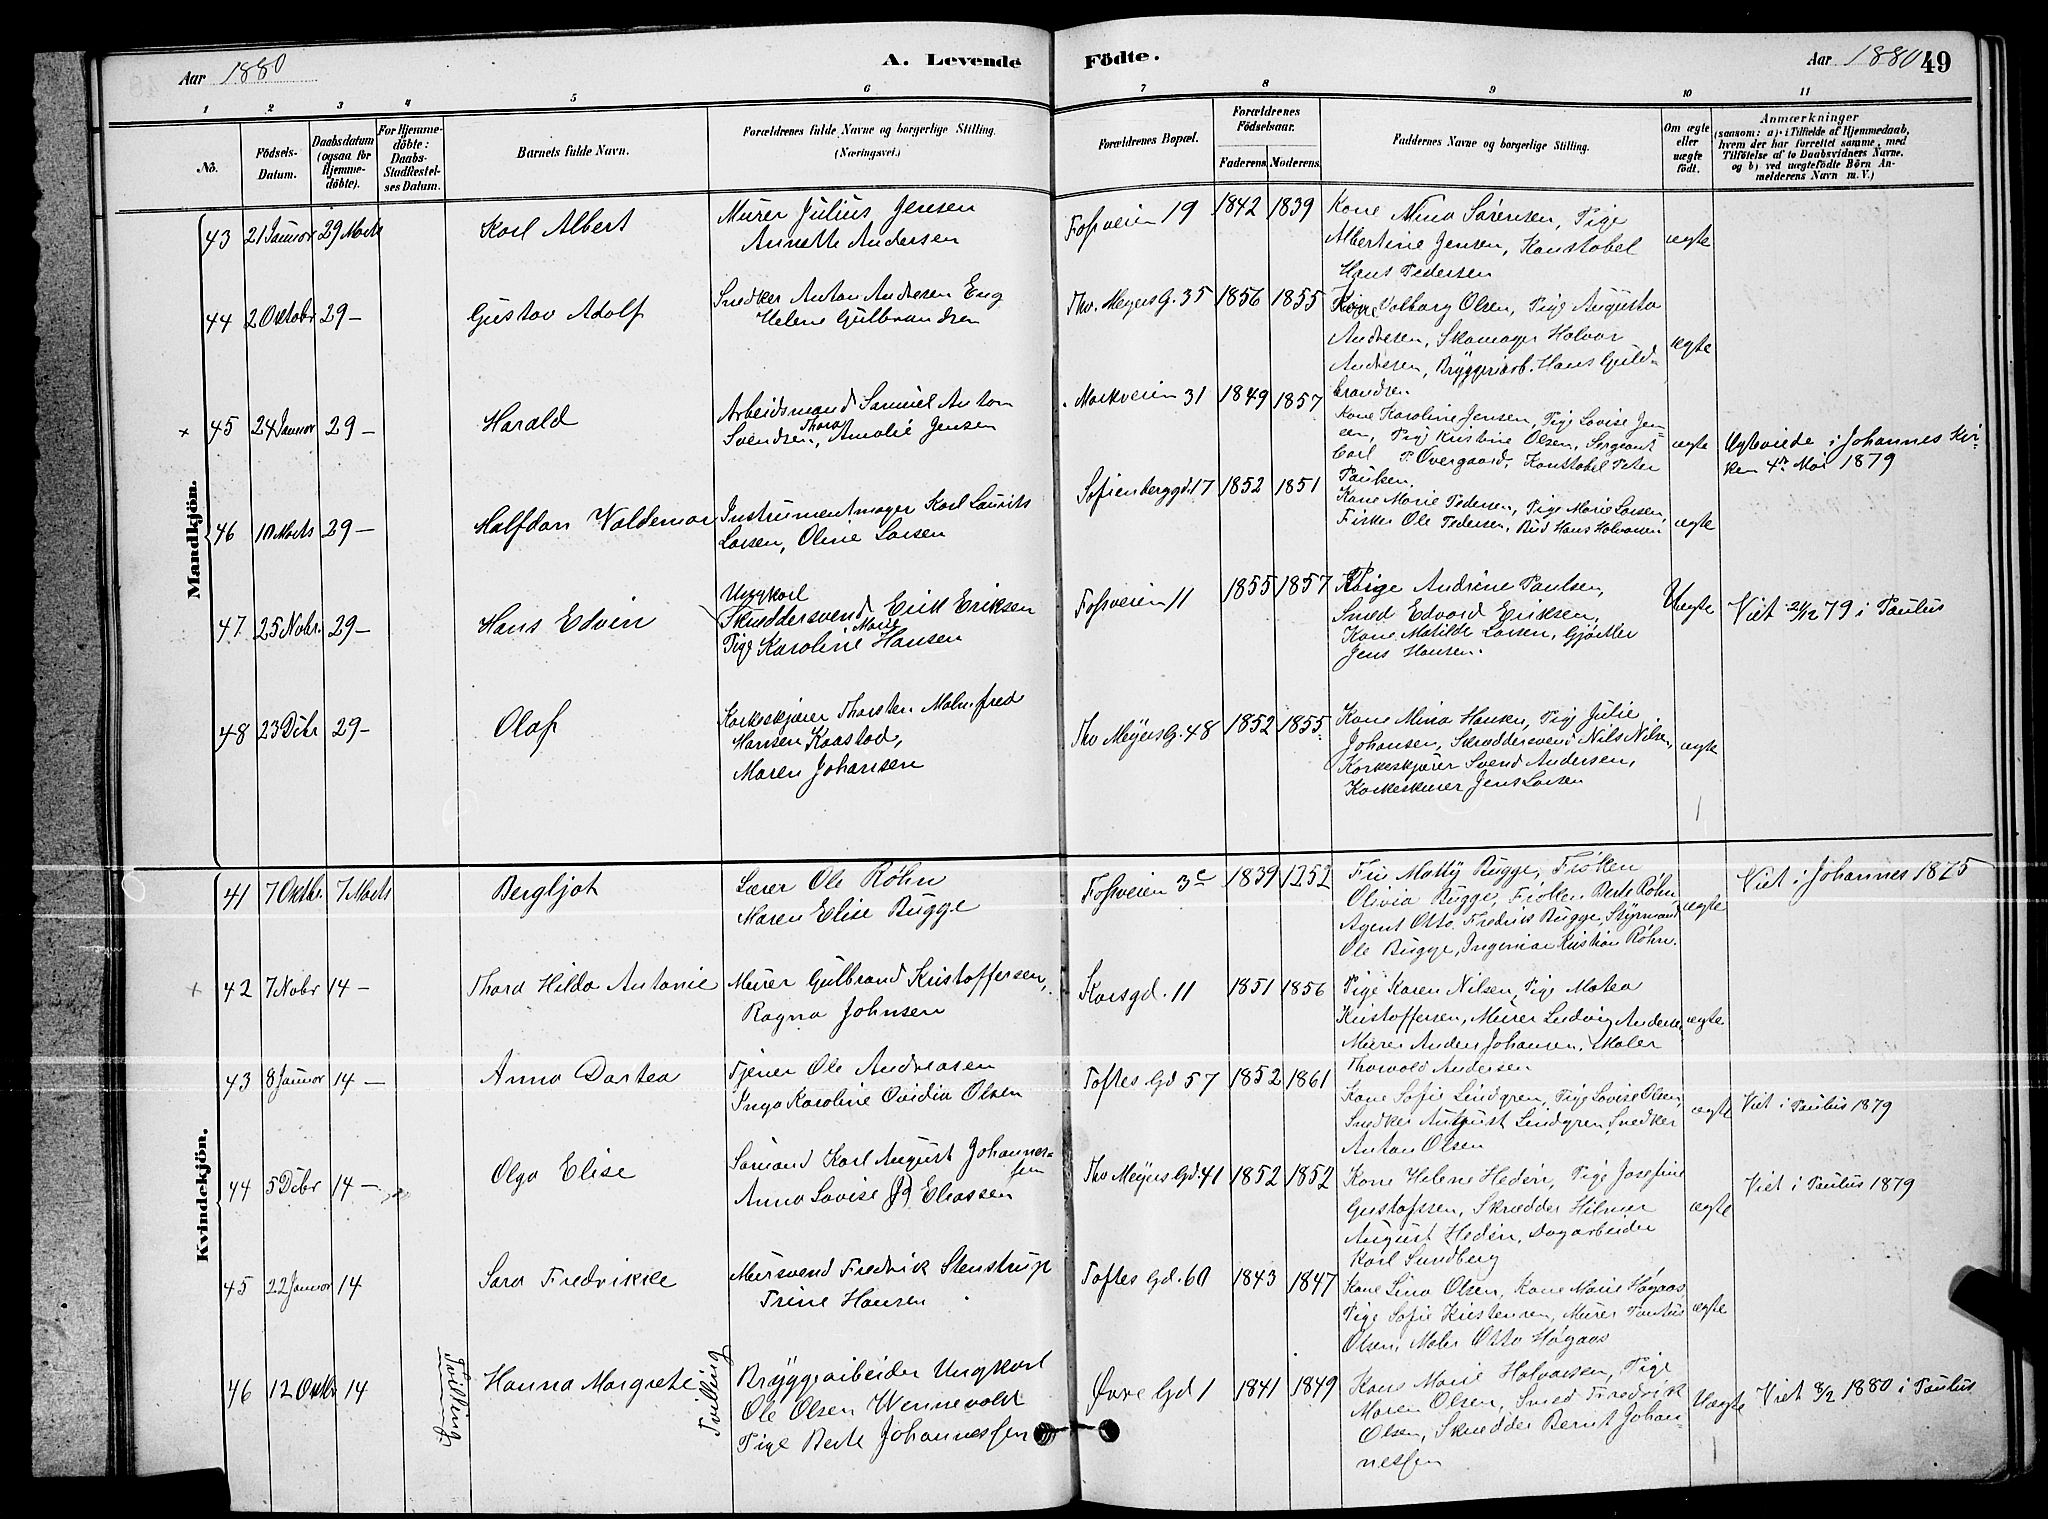 Aar 1880
A. Levende Födte.
Aar 1880 49
1 2 3 4 5 6 7 8 9 10 11
No.
Födsels-
Datum.
Daabsdatum
(ogsaa for
Hjemme-
döbte).
For Hjemme-
döbte:
Daabs-
Stadfestel-
ses Datum.
Barnets fulde Navn.
Forældrenes fulde Navne og borgerlige Stilling.
(Næringsvei.)
Forældrenes Bopæl.
Forældrenes
Födselsaar.
Faderens. Moderens.
Faddernes Navne og borgerlige Stilling.
Om ægte
eller
uægte
födt.
Anmærkninger
(saasom: a) i Tilfælde af Hjemmedaab,
hvem der har forrettet samme, med
Tilföielse af to Daabsvidners Navne,
og b) ved uægtefödte Börn An-
melderens Navn m. V.)
Mandkjön.
43 21 Januar 29 Marts Karl Albert
Murer Julius Jensen
Annette Andersen
Fossveien 19 1842 1839
Kone Mina Sørensen, Pige
Albertine Jensen, Konstabel
Hans Pedersen
ægte
44 2 Oktobr 29- Gustav Adolf
Snedker Anton Andresen Eng
Helene Gulbrandsen
Thv. Meyers G. 35 1856 1855
Kone Valborg Olsen, Pige Augusta
Andresen, Skomager Halvor
Andresen, Bryggeriarb. Hans Guld-
brandsen
ægte
45 24 Januar 29- Harald
Arbeidsmand Samuel Anton
Svendsen, Thora Amalie Jensen
Markveien 31 1849 1857
Kone Karoline Jensen, Pige Lovise Jen-
sen, Pige Kristine Olsen, Sergeant
Carl P. Overgaard, Konstabel Peter
Paulsen.
ægte
Ægteviede i Johannes Kir-
ken 4de Mai 1879
46 10 Marts 29- Halfdan Valdemar
Instrumentmager Karl Laurits
Larsen, Oline Larsen
Sofienberggd. 17 1852 1851
Kone Marie Pedersen, Pige Marie Larsen,
Fisker Ole Pedersen, Bud Hans Halvorsen
ægte
47 25 Nobr. 29- Hans Edvin
Ungkarl
Skræddersvend Erik Eriksen
Pige Karoline Marie Hansen
Fossveien 11 1855 1857
Pige Andrine Paulsen,
Smed Edvard Eriksen,
Kone Matilde Larsen, Gjørtler
Jens Hansen.
Uægte
Viet 21/12 79 i Paulus
48 23 Dcbr 29- Olaf
Korkeskjærer Thorsten Malmfred
Hansen Kaastad,
Maren Johansen
Thv Meyers G. 48 1852 1855
Kone Mina Hansen, Pige Julie
Johansen, Skræddersvend Nils Nilsen,
Korkeskjærer Svend Andersen,
Korkeskjærer Jens Larsen
ægte
Kvindekjön.
41 7 Oktbr. 7 Marts Bergljot
Lærer Ole Røhn
Maren Elise Bugge
Fossveien 3c 1839 1252
Fru Matty Bugge, Frøken
Olivia Bugge, Frøken Berte Røhn,
Agent Otto Fredrik Bugge, Styrmand
Ole Bugge, Ingeniør Kristian Røhn.
ægte
Viet i Johannes 1875
42 7 Nobr 14- Thora Hilda Antonie
Murer Gulbrand Kristoffersen,
Ragna Johnsen
Korsgd. 11 1851 1856
Pige Karen Nilsen, Pige Matea
Kristoffersen, Murer Ludvig Andersen,
Murer Anders Johansen, Maler
Thorvald Andersen
ægte
43 8 Januar 14- Anna Dortea
Tjener Ole Andreasen
Inga Karoline Ovidia Olsen
Toftes Gd 57 1852 1861
Kone Sofie Lindgren, Pige Lovise Olsen,
Snedker August Lindgren, Snedker
Anton Olsen
ægte
Viet i Paulus 1879
44 5 Dcbr 14- Olga Elise
Sømand Karl August Johannes-
sen
Anna Lovise Eliassen
Thv Meyers Gd. 41 1852 1852
Kone Helene Hedin, Pige Josefine
Gustafssen, Skrædder Hilmer
August Hedin, Dagarbeider
Karl Sundberg
ægte
Viet i Paulus 1879
45 22 Januar 14 Sara Fredrikke
Mursvend Fredrik Stenstrup
Trine Hansen
Toftes Gd. 60 1843 1847
Kone Lina Olsen, Kone Marie Høgaas,
Pige Sofie Kristensen, Murer Pantus
Olsen, Maler Otto Høgaas
ægte
46 12 Oktbr 14 Tvilling Hanna Margrete Tvilling
Bryggearbeider Ungkarl
Ole Olsen Wennevold
Pige Berte Johannessen
Øvre Gd 1 1841 1849
Kone Marie Halvorsen, Pige
Maren Olsen, Smed Fredrik
Olsen, Skrædder Bernt Johan-
nessen
Uægte
Viet 8/2 1880 i Paulus